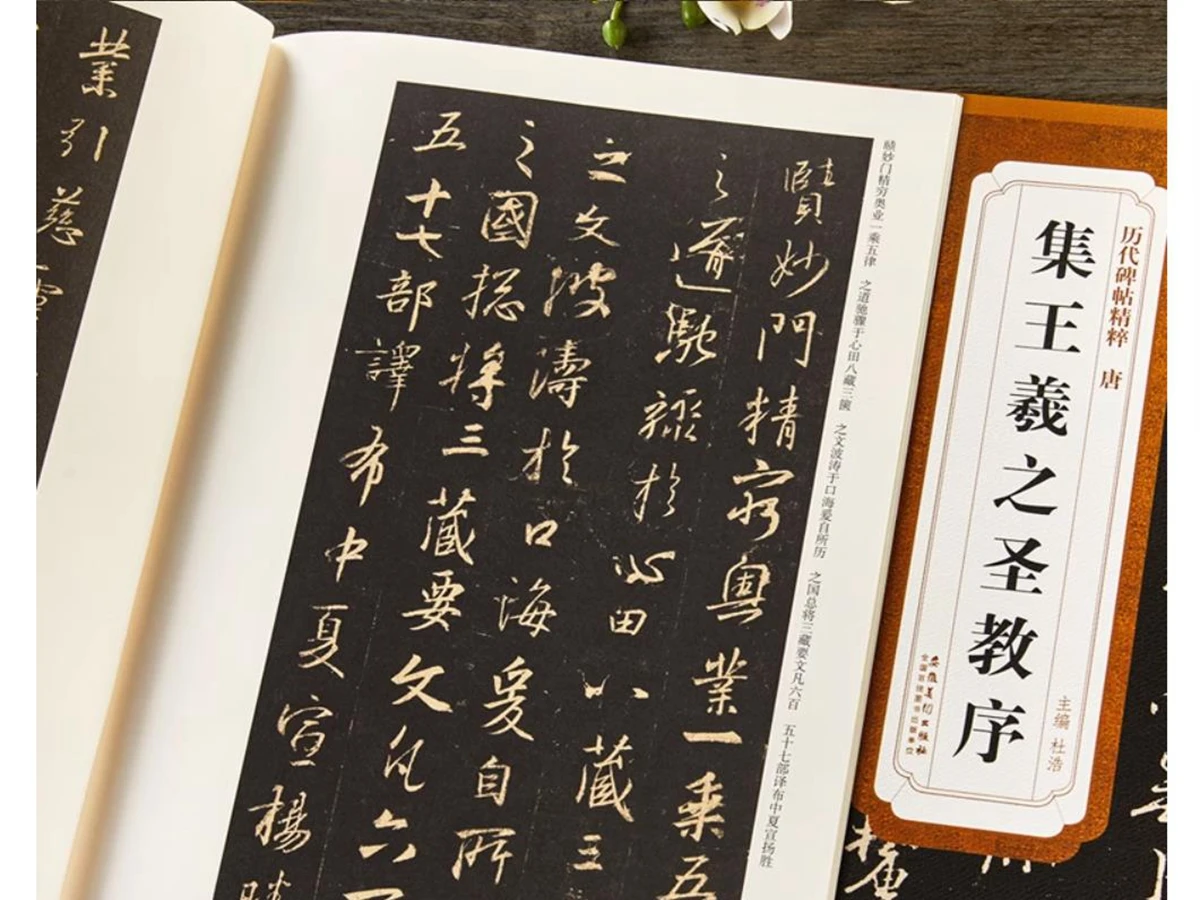 历代碑帖精粹 唐
集王羲之圣教序
主编 杜浩
安徽美术出版社
全国百佳图书出版单位
赜妙门精穷奥业一乘五律 之道驰骤于心田八藏三箧 之文波涛于口海爰自所历 之国总将三藏要文凡六百 五十七部译布中夏宣扬胜
賾妙門精窮奧業一乘五
之道馳驟於心田八藏三
之文波濤於口海爰自所
之國揔將三藏要文凡六
五十七部譯布中夏宣揚勝
業引慈雲